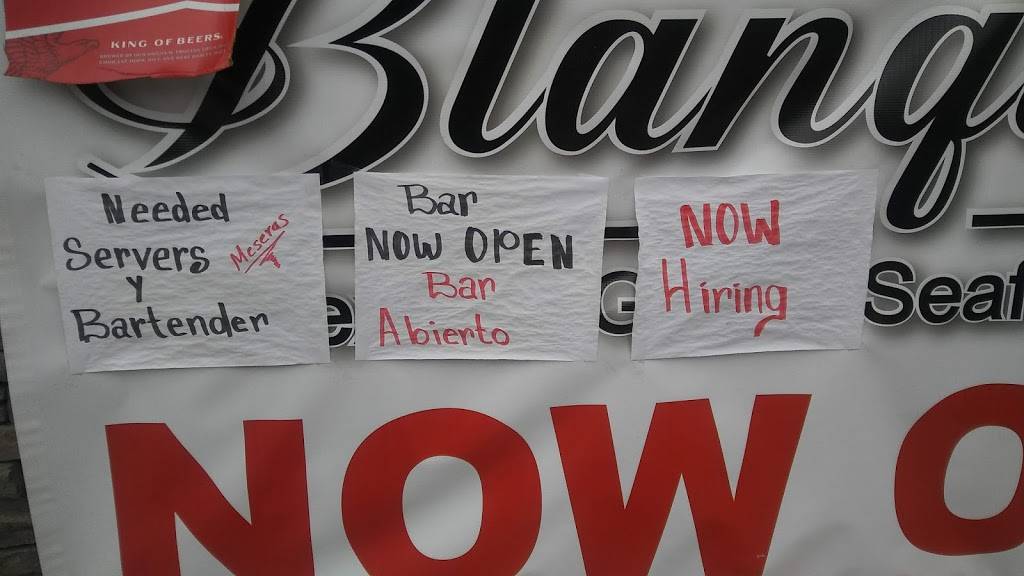 KING OF BEERS.
Blanq
Needed
Servers Meseras
y
Bartender
Bar
NOW OPEN
Bar
Abierto
NOW
Hiring
Seaf
NOW O